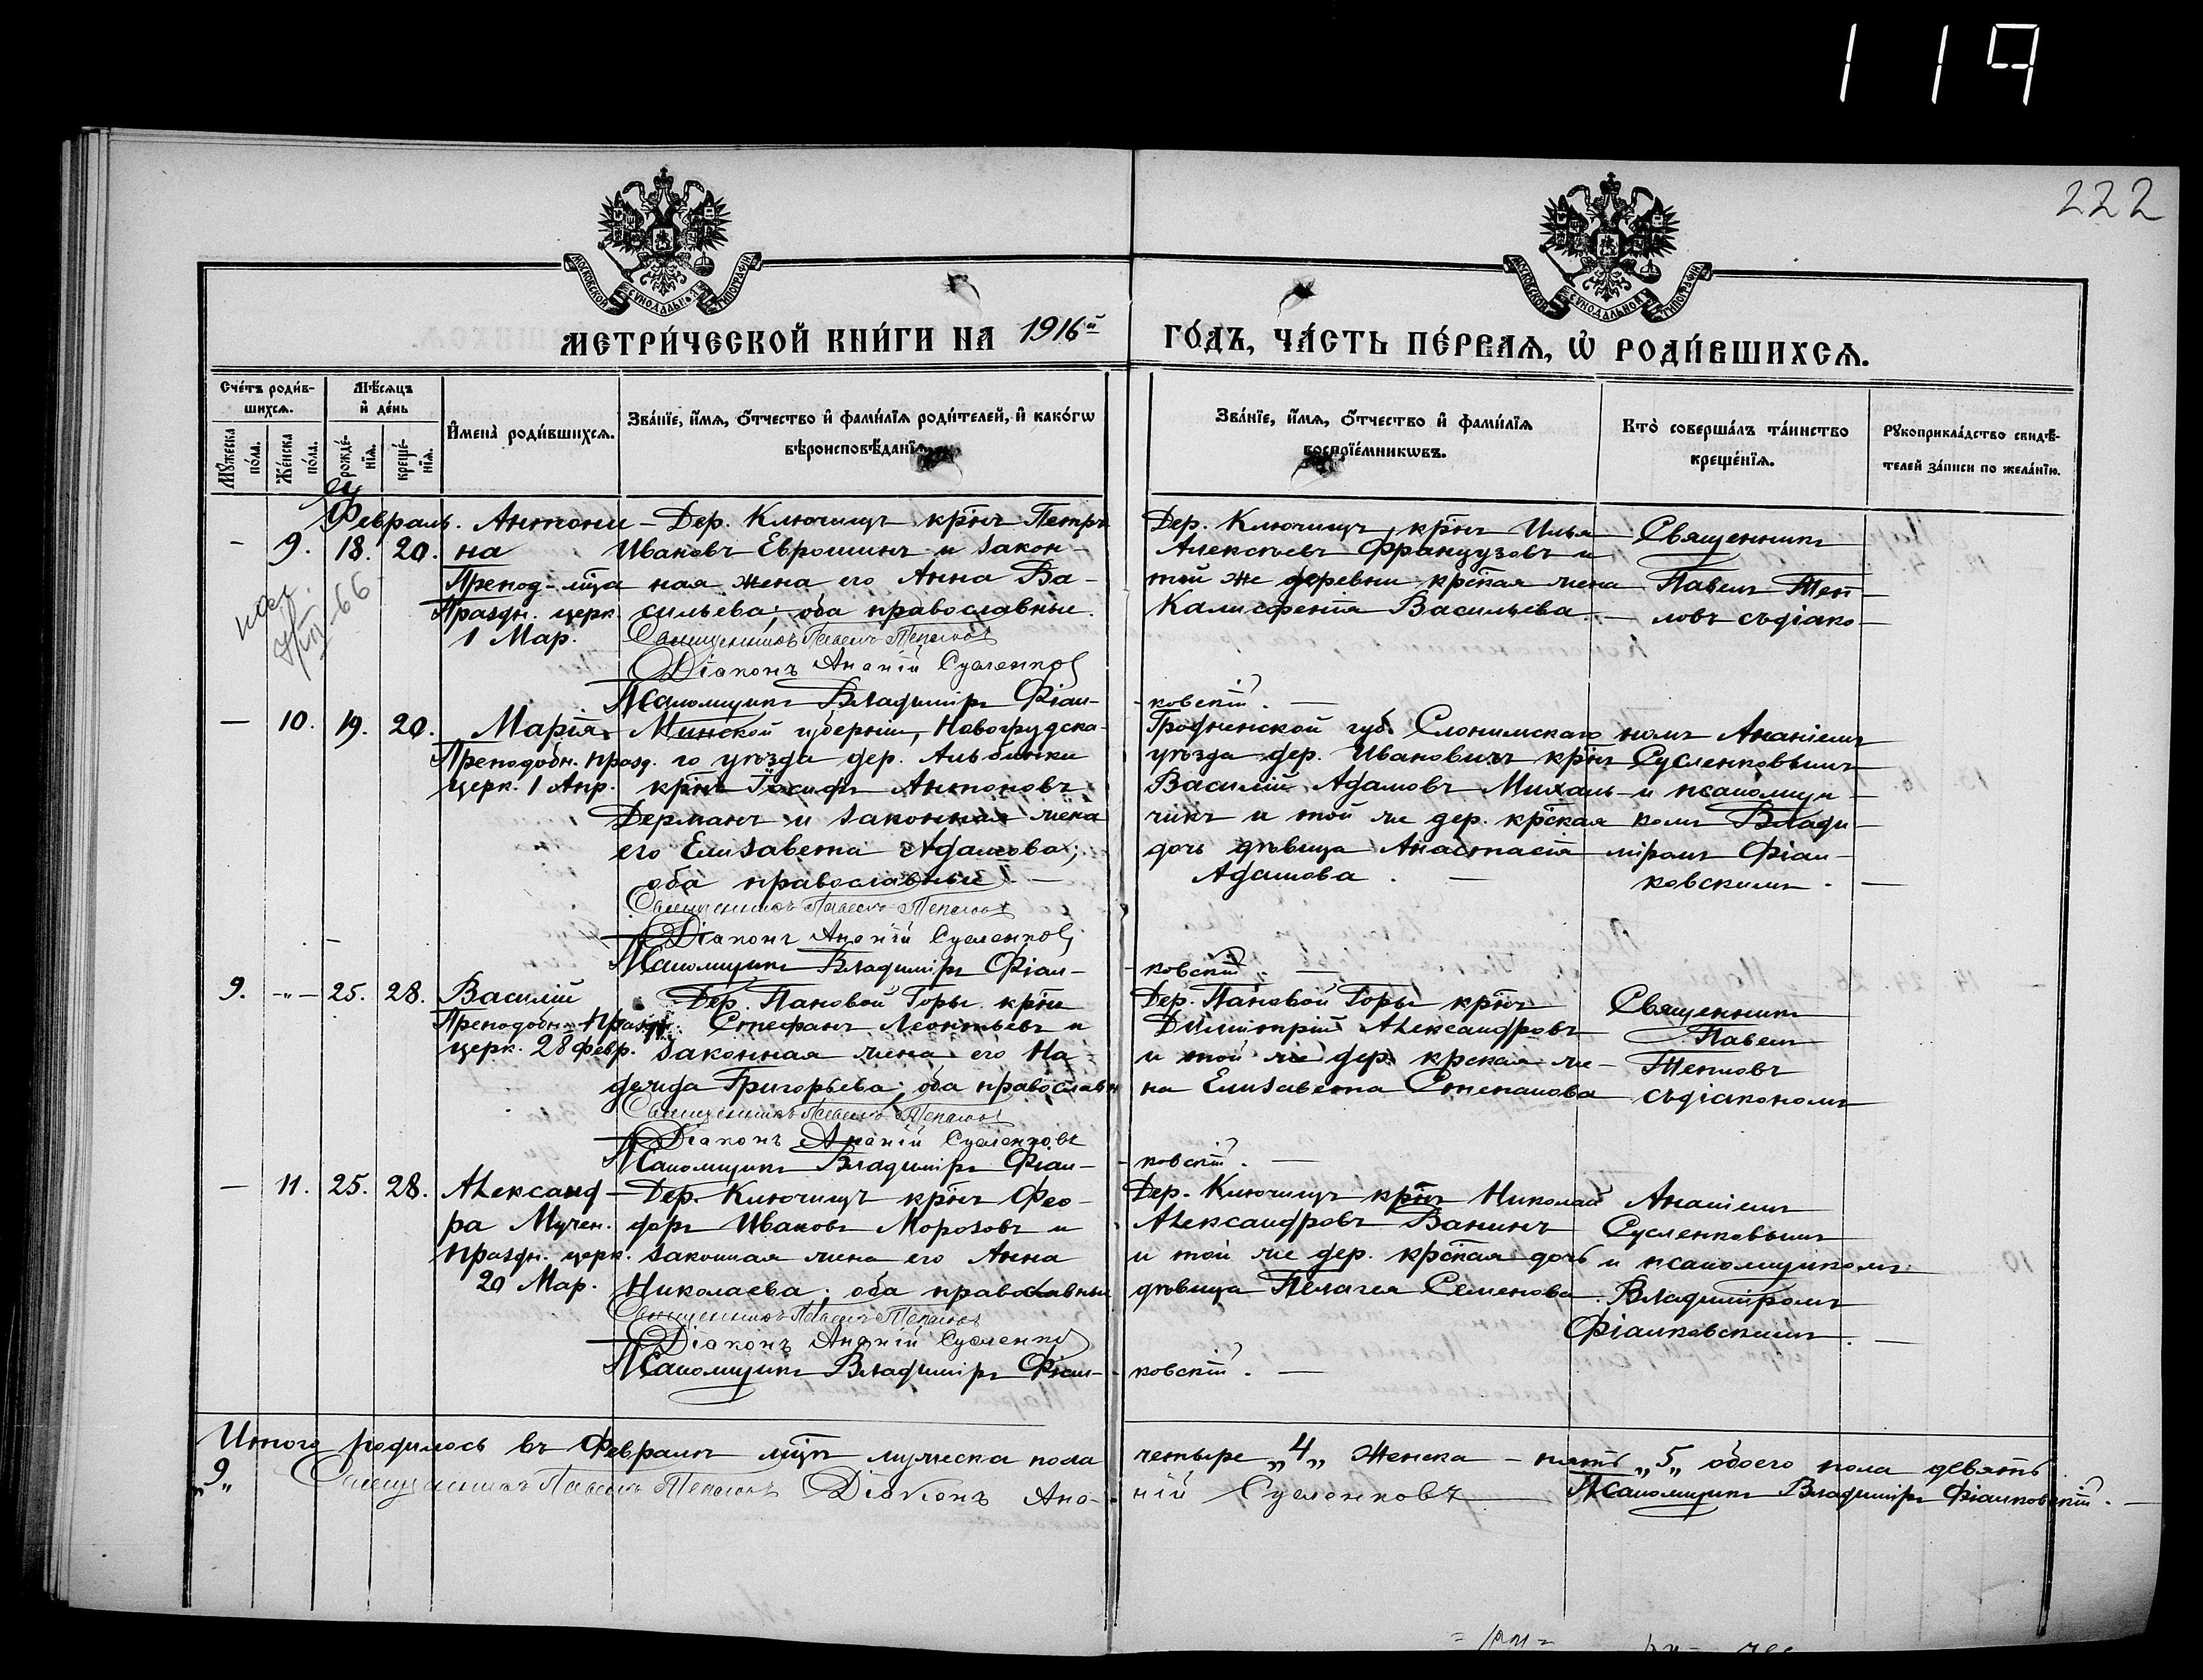 119
222
МОСКОВСКОЙ СѴНОДАЛЬНОЙ ТИПОГРАФІИ
МОСКОВСКОЙ СѴНОДАЛЬНОЙ ТИПОГРАФІИ
МЕТРИ́ЧЕСКОЙ КНИ́ГИ НА 1916й ГО́ДЪ, ЧА́СТЬ ПЕ́РВАѦ, Ѽ РОДИ́ВШИХСѦ.
Сче́тъ роди́в-
шихсѧ.
Мѣ́сѧцъ
и҆ де́нь
Мꙋ́жеска
по́ла.
Же́нска
по́ла.
рожде́-
нїѧ.
креще́-
нїѧ.
И҆мена̀ роди́вшихсѧ.
Зва́нїе, и҆́мѧ, ѻ҆́тчество и҆ фами́лїѧ роди́телей, и҆ како́гѡ
вѣроисповѣ́данїѧ.
Зва́нїе, и҆́мѧ, ѻ҆́тчество и҆ фами́лїѧ
воспрїе́мникѡвъ.
Кто̀ соверша́лъ та́инство
креще́нїѧ.
Рꙋкоприкла́дство свидѣ́-
телей за́писи по жела́нїю.
Февраль.
— 9. 18. 20.
Антони-
на
Препод-мца
Праздн. церк.
1 Мар.
Дер. Ключищъ крнъ Петръ
Ивановъ Еврошинъ и закон-
ная жена его Анна Ва-
сильева; оба православные.
Священникъ Павелъ Тепловъ
Діаконъ Ананій Сусленков
Псаломщикъ Владиміръ Фіал-
ковскій. —
Дер. Ключищъ, крнъ Илья
Алексѣевъ Французовъ и
той же деревни крская жена
Калисфенія Васильева. —
Священникъ
Павелъ Теп-
ловъ съ діако-
— 10. 19. 20.
Марія
Преподобн. празд.
церк. 1 Апр.
Минской губерніи, Новогрудска-
го уѣзда дер. Альбинки
крнъ Іосифъ Антоновъ
Дерманъ и законная жена
его Елизавета Адамова;
оба православные. —
Священникъ Павелъ Тепловъ
Діаконъ Ананій Сусленков
Псаломщикъ Владиміръ Фіал-
ковскій. —
Гродненской губ. Слонимскаго
уѣзда дер. Ивановичъ крнъ
Василій Адамовъ Михаль-
чикъ и той же дер. крская
дочь дѣвица Анастасія
Адамова. —
номъ Ананіемъ
Сусленковымъ
и псаломщи-
комъ Влади-
міромъ Фіал-
ковскимъ. —
9. — 25. 28.
Василій
Преподобн. Празд.
церк. 28 февр.
Дер. Пановой Горы крнъ
Стефанъ Леонтьевъ и
законная жена его На-
дежда Григорьева; оба православн
Священникъ Павелъ Тепловъ
Діаконъ Ананій Сусленковъ
Псаломщикъ Владиміръ Фіал-
ковскій. —
Дер. Пановой Горы крнъ
Димитрій Александровъ
и той же дер. крская же-
на Елизавета Степанова
Священникъ
Павелъ
Тепловъ
съ діакономъ
— 11. 25. 28.
Александ-
ра Мучен.
праздн. церк.
20 Мар.
Дер. Ключищъ крнъ Фео-
доръ Ивановъ Морозовъ и
законная жена его Анна
Николаева; оба православные
Священникъ Павелъ Тепловъ
Діаконъ Ананій Сусленков
Псаломщикъ Владиміръ Фіал-
ковскій. —
Дер. Ключищъ крнъ Николай
Александровъ Ванинъ
и той же дер. крская дочь
дѣвица Пелагея Семенова.
Ананіемъ
Сусленковымъ
и псаломщикомъ
Владиміромъ
Фіалковскимъ. —
Итого родилось въ Февралѣ мцѣ мужеска пола четыре „4„ Женска — пять „5„ обоего пола девять
„9„ Священникъ Павелъ Тепловъ Діаконъ Ана-ній Сусленковъ Псаломщикъ Владиміръ Фіалковскій. —